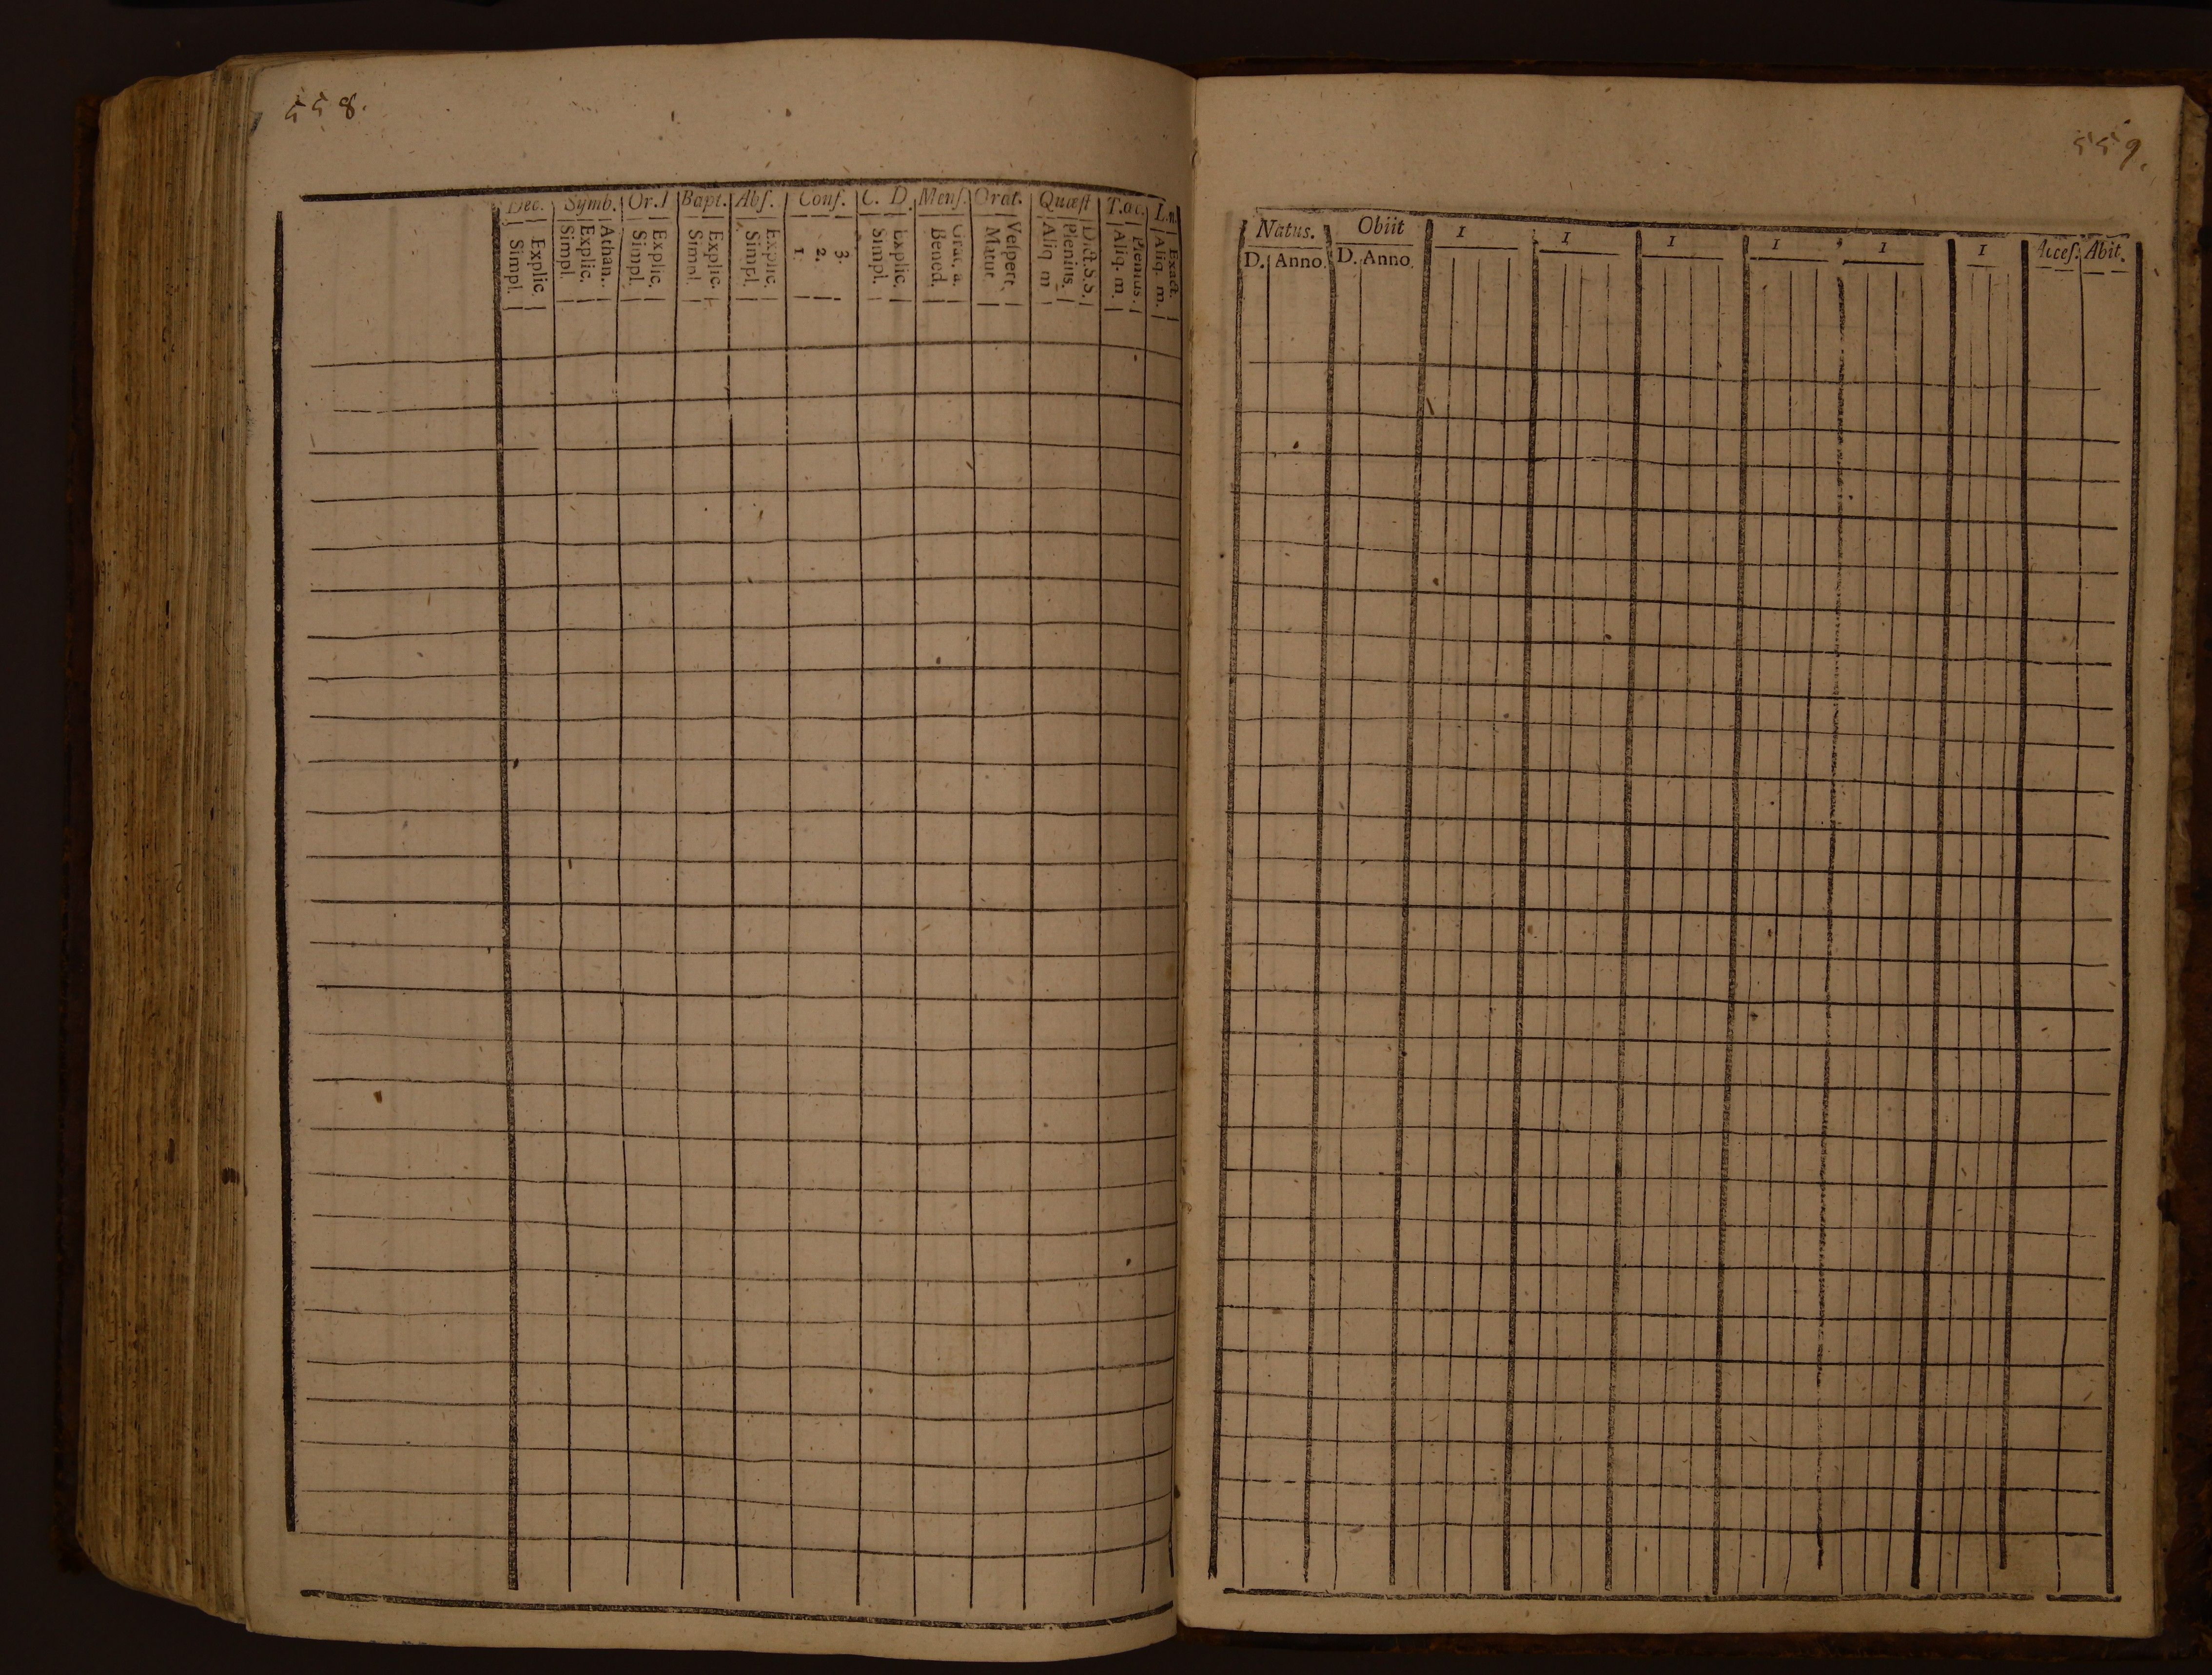 558.
Dec. Symb. Or. Bapt. Abſ. Conf. C. D. Menſ. Orat. Quæſt T.œc. L.n.
Simpl. Explic. Simpl. Explic. Athan. Simpl. Explic. Simpl. Explic. Simpl. Explic. 1. 2. 3. Simpl. Explic. Bened. Grat. a. Matut. Veſpert. Aliq. m Plenius. Dict. S.S. Aliq. m. Plenius. Aliq. m. Exact.
559.
Natus. Obiit 1 1 1 1 1 1 Acceſ. Abit.
D. Anno. D. Anno.